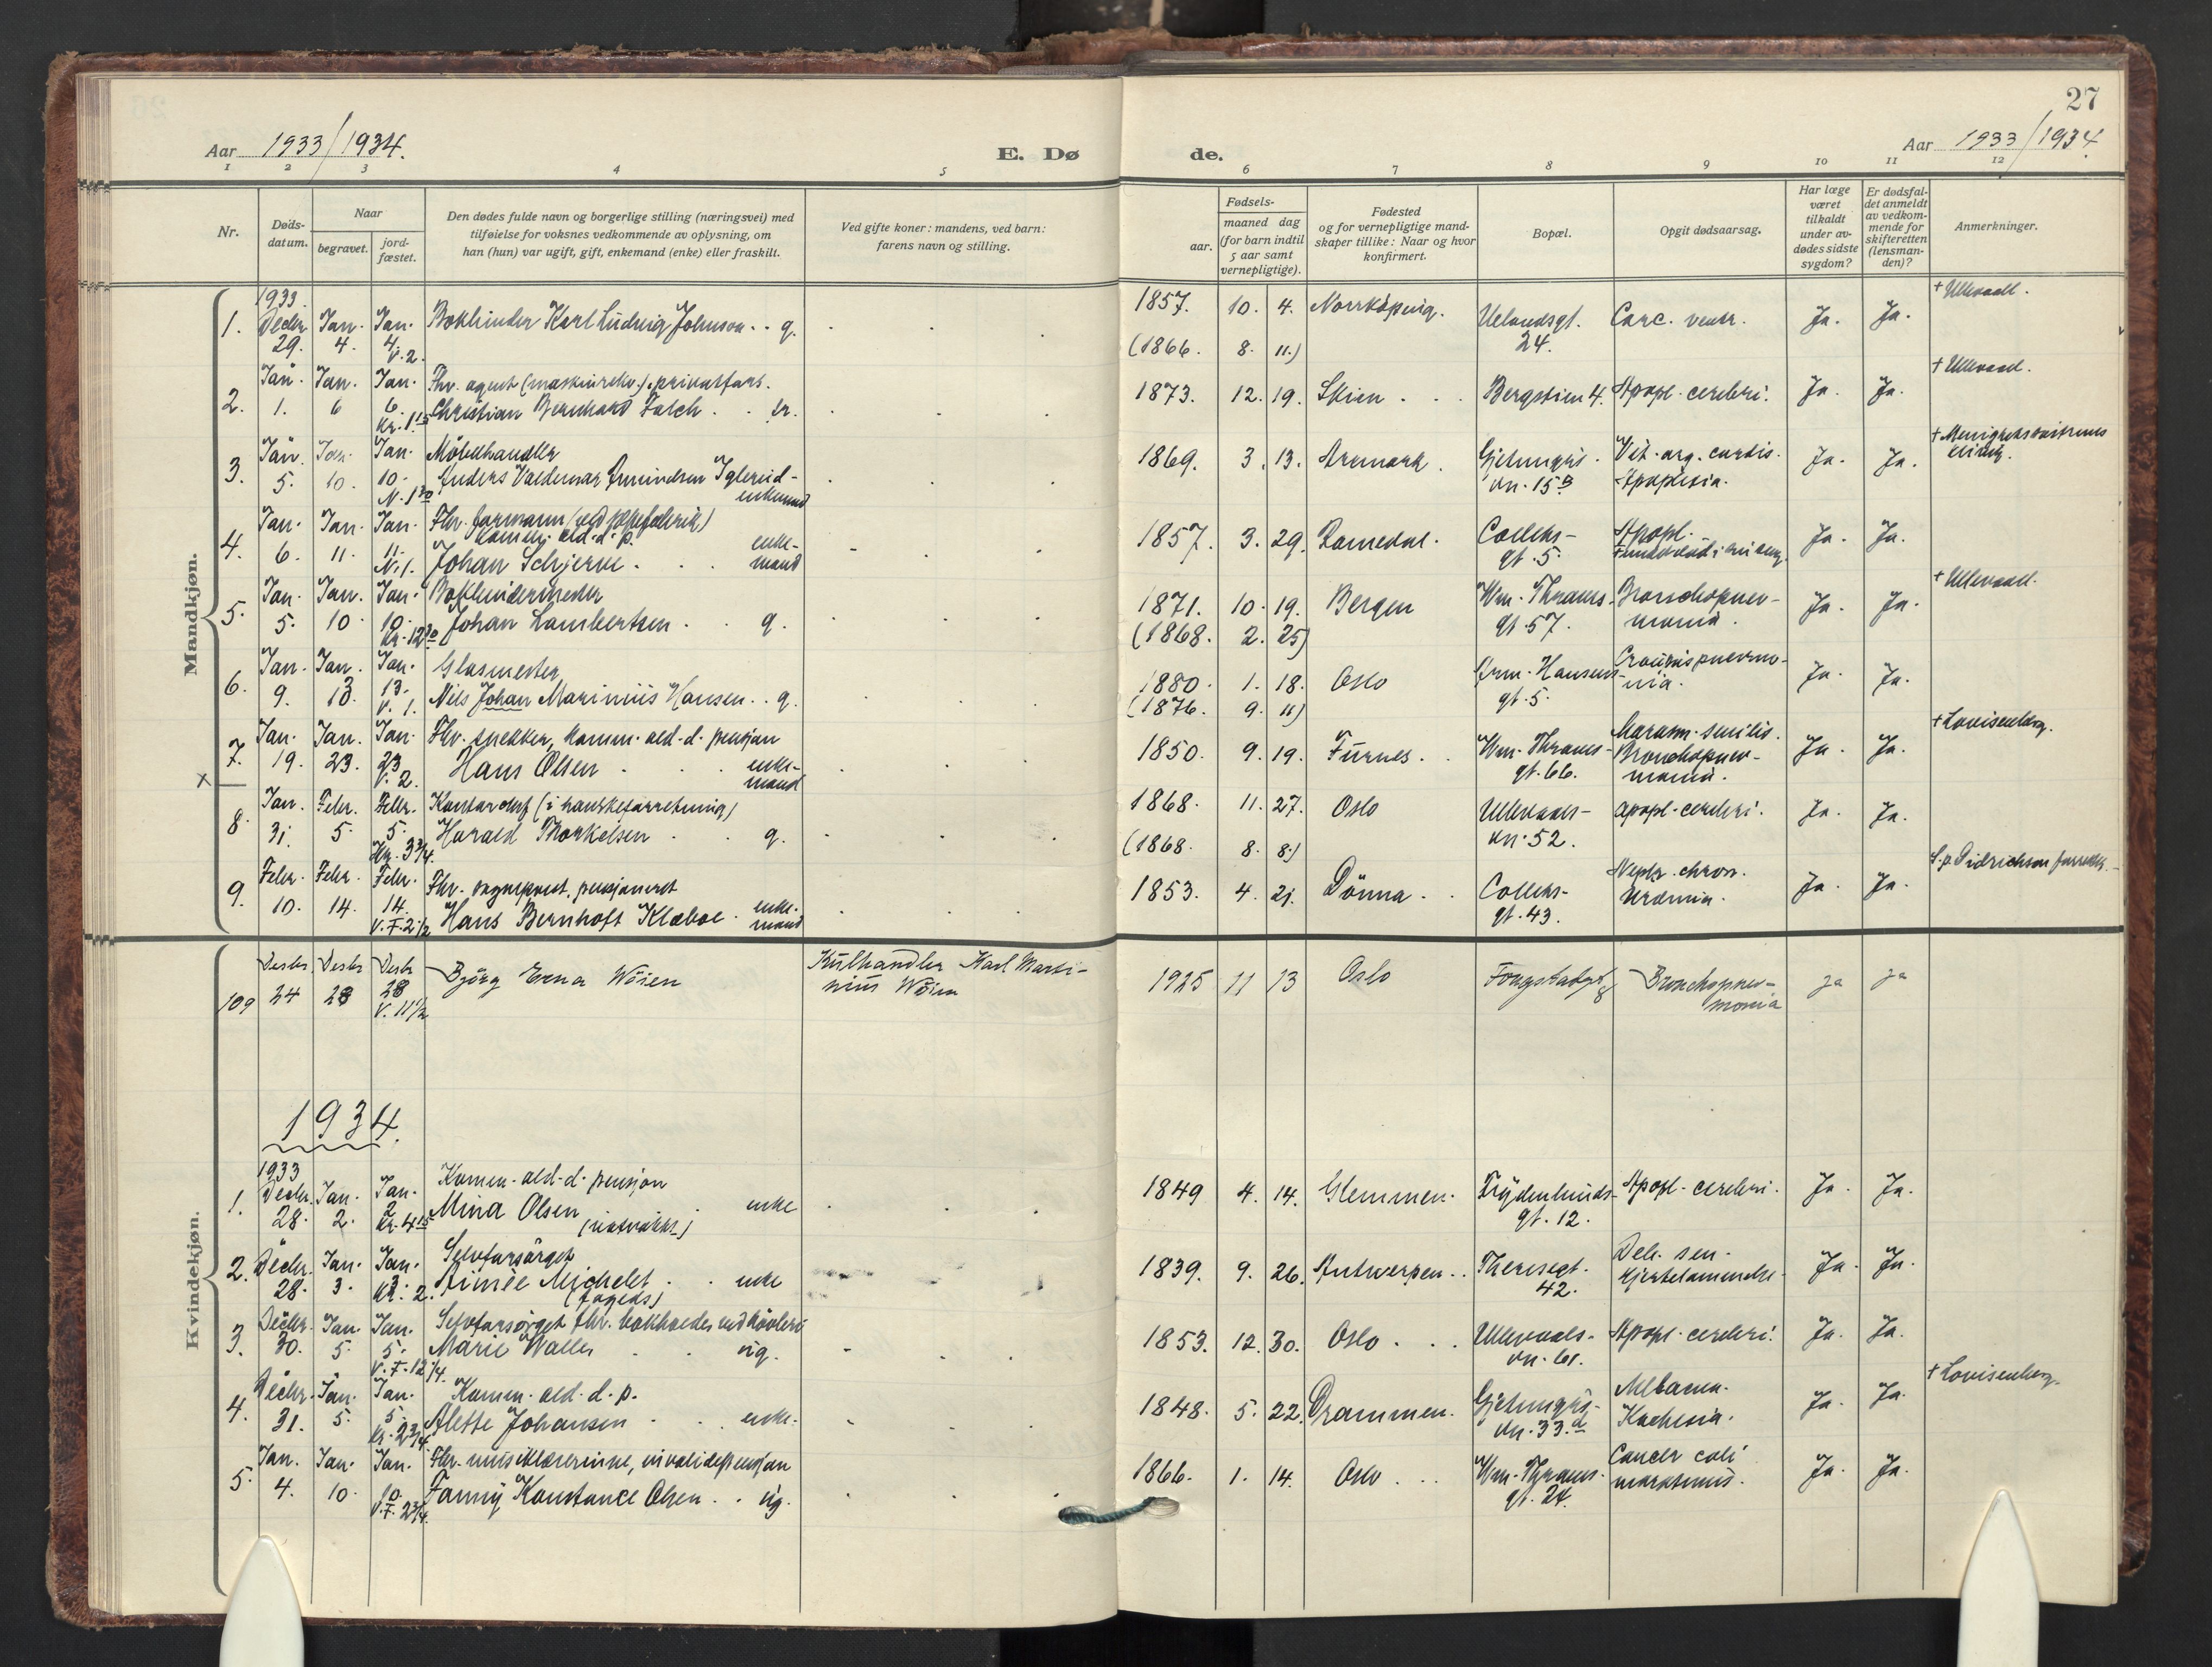 27
Aar 1933/1934.
E. Dø
de.
Aar 1933/1934.
1 2 3 4 5 6 7 8 9 10 11 12
Nr.
Døds-
datum.
Naar
begravet.
jord-
fæstet.
Den dødes fulde navn og borgerlige stilling (næringsvei) med
tilføielse for voksnes vedkommende av oplysning, om
han (hun) var ugift, gift, enkemand (enke) eller fraskilt.
Ved gifte koner: mandens, ved barn:
farens navn og stilling.
Fødsels-
aar.
maaned dag
(for barn indtil
5 aar samt
vernepligtige).
Fødested
og for vernepligtige mand-
skaper tillike: Naar og hvor
konfirmert.
Bopæl.
Opgit dødsaarsag.
Har læge
været
tilkaldt
under av-
dødes sidste
sygdom?
Er dødsfal-
det anmeldt
av vedkom-
mende for
skifteretten
(lensman-
den)?
Anmerkninger.
Mandkjøn.
1933.
1. Decbr. 29. Jan. 4. Jan. 4. V. 2. Bokbinder Karl Ludvig Johnson . . g.
1857. 10. 4. Norrköping. Uelandsgt. 24. Carc. ventr. Ja. Ja. + Ullevaal.
(1866. 8. 11.)
2. Jan. 1. Jan. 6 Jan. 6. Kr. 1 15 Fhv. agent (maskinrekv.), privatfors.
Christian Bernhard Falch . . er.
1873. 12. 19. Skien . . Bergstien 4. Apopl. cerebri. Ja. Ja. + Ullevaal.
3. Jan. 5. Jan. 10. Jan. 10. N. 1 30 Møbelhandler
Anders Valdemar Amundsen Iglerud - enkemand
1869. 3. 13. Aremark. Gjetemyrs- vn. 15 B Vit. org. cordis. Apoplexia. Ja. Ja. + Menighetssøstrenes klinik.
4. Jan. 6. Jan. 11. Jan. 11. N. 1. Fhv. formann
Komm. ald. d. p.
Johan Schjerve . . enke- mand
1857. 3. 29. Romedal. Colletts- gt. 5. Apopl. Ja. Ja.
5. Jan. 5. Jan. 10. Jan. 10. Kr. 12 30 Bokbindermester
Johan Lambertsen . . g.
1871. 10. 19. Bergen Wm. Thranes- gt. 57. Bronchopneu- monia. Ja. Ja. + Ullevaal.
(1868. 2. 25)
6. Jan. 9. Jan. 13. Jan. 13. V. 1. Glasmester
Nils Johan Marinius Hansen . . g.
1880. 1. 18. Oslo Arm. Hansens- gt. 5. Croupøs pneumo- nia. Ja. Ja.
(1876. 9. 11)
7. Jan. 19. Jan. 23. Jan. 23 V. 2. Fhv. snekker, komm. ald. d. pensjon
Hans Olsen . . . enke- mand
1850. 9. 19. Furnes . . Wm. Thranes- gt. 66. Marasm. senilis. Bronchopneu- monia. Ja. Ja. + Lovisenberg.
x
8. Jan. 31. Febr. 5. Febr. 5. Kr. 3 3/4. Kontorchef (i hanskeforretning)
Harald Thorkelsen . . g.
1868. 11. 27. Oslo Ullevaals- vn. 52. Apopl. cerebri. Ja. Ja.
(1868. 8. 8.)
9. Febr. 10. Febr. 14. Febr. 14. V. F. 2 1/2 Fhv. sogneprest, pensjonert
Hans Bernhoft Klæboe . enke- mand
1853. 4. 21. Dønna . . Colletts- gt. 43. Nephr. chron. Uræmia. Ja. Ja.
Kvindekjøn.
109 Desbr 24 Desbr 28 Desbr 28 V. 11 1/2 Bjørg Erna Wøien
Kulhandler Karl Marti-
nius Wøien
1925 11 13 Oslo Fougstadgt 8 Bronchopneu- monia ja ja
1934.
1933
1. Decbr. 28. Jan. 2. Jan. 2 Kr. 4 15 Komm. ald. d. pensjon
Mina Olsen . . enke
1849 4. 14. Glemmen. Frydenlunds- gt. 12. Apopl. cerebri. Ja. Ja.
2. Decbr. 28. Jan. 3. Jan. 3. Kr. 2. Selvforsørget
Aimée Michelet . . enke
1839. 9. 26. Antwerpen . . Theresegt. 42. Deb. sen. Hjertelammelse. Ja. Ja.
3. Decbr. 30. Jan. 5. Jan. 5. V. F. 12 1/4. Selvforsørget fhv.
Marie Waller . . ug.
1853. 12. 30. Oslo . . . Ullevaals- vn. 61. Apopl. cerebri. Ja. Ja.
4. Decbr. 31. Jan. 5. Jan. 5. Kr. 2 3/4 Komm. ald. d. p.
Alette Johansen . . enke.
1848. 5. 22. Drammen. Gjetemyrs- vn. 33. d Kachexia. Ja. Ja. + Lovisenberg.
5. Jan. 4. Jan. 10. Jan. 10. V. F. 2 3/4. Fhv. musiklærerinne, invalidepensjon
Fanny Konstance Olsen . . ug.
1866. 1. 14. Oslo . . Wm. Thranes- gt. 24. Cancer coli marasmus. Ja. Ja.